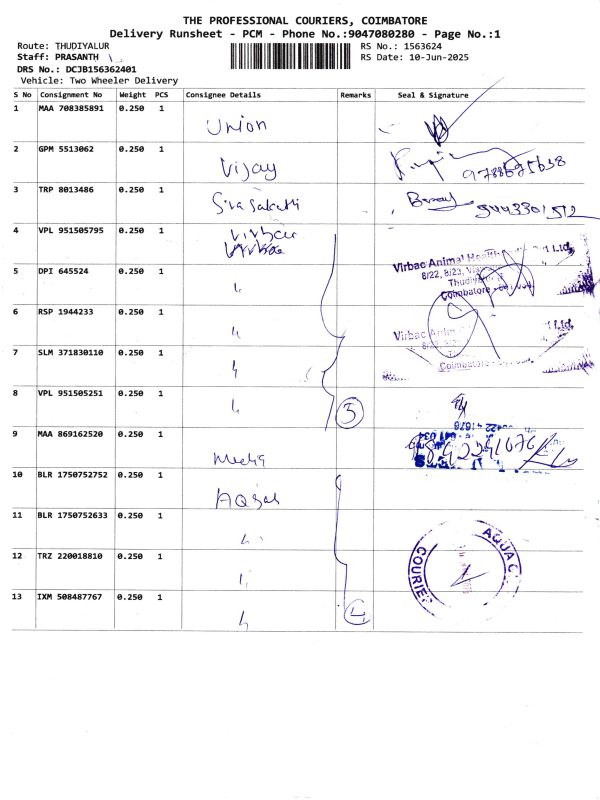 THE PROFESSIONAL COURIERS, COIMBATORE
Delivery Runsheet - PCM - Phone No.:9047080280 - Page No.:1
Route: THUDIYALUR
RS No.: 1563624
Staff: PRASANTH
RS Date: 10-Jun-2025
DRS No.: DCJB156362401
Vehicle: Two Wheeler Delivery
S No Consignment No Weight PCS Consignee Details Remarks Seal & Signature
1 MAA 708385891 0.250 1 Union
2 GPM 5513062 0.250 1 Vijay
3 TRP 8013486 0.250 1
4 VPL 951505795 0.250 1 Virbac
Virbac Animal Health
8/22, 8/23,
Thudiyalur
Coimbatore
5 DPI 645524 0.250 1 "
6 RSP 1944233 0.250 1 "
Virbac
Coimbatore
7 SLM 371830110 0.250 1 "
8 VPL 951505251 0.250 1 " 5
9 MAA 869162520 0.250 1
10 BLR 1750752752 0.250 1
11 BLR 1750752633 0.250 1 "
12 TRZ 220018810 0.250 1 "
AQUA
COURIER
13 IXM 508487767 0.250 1 " 4